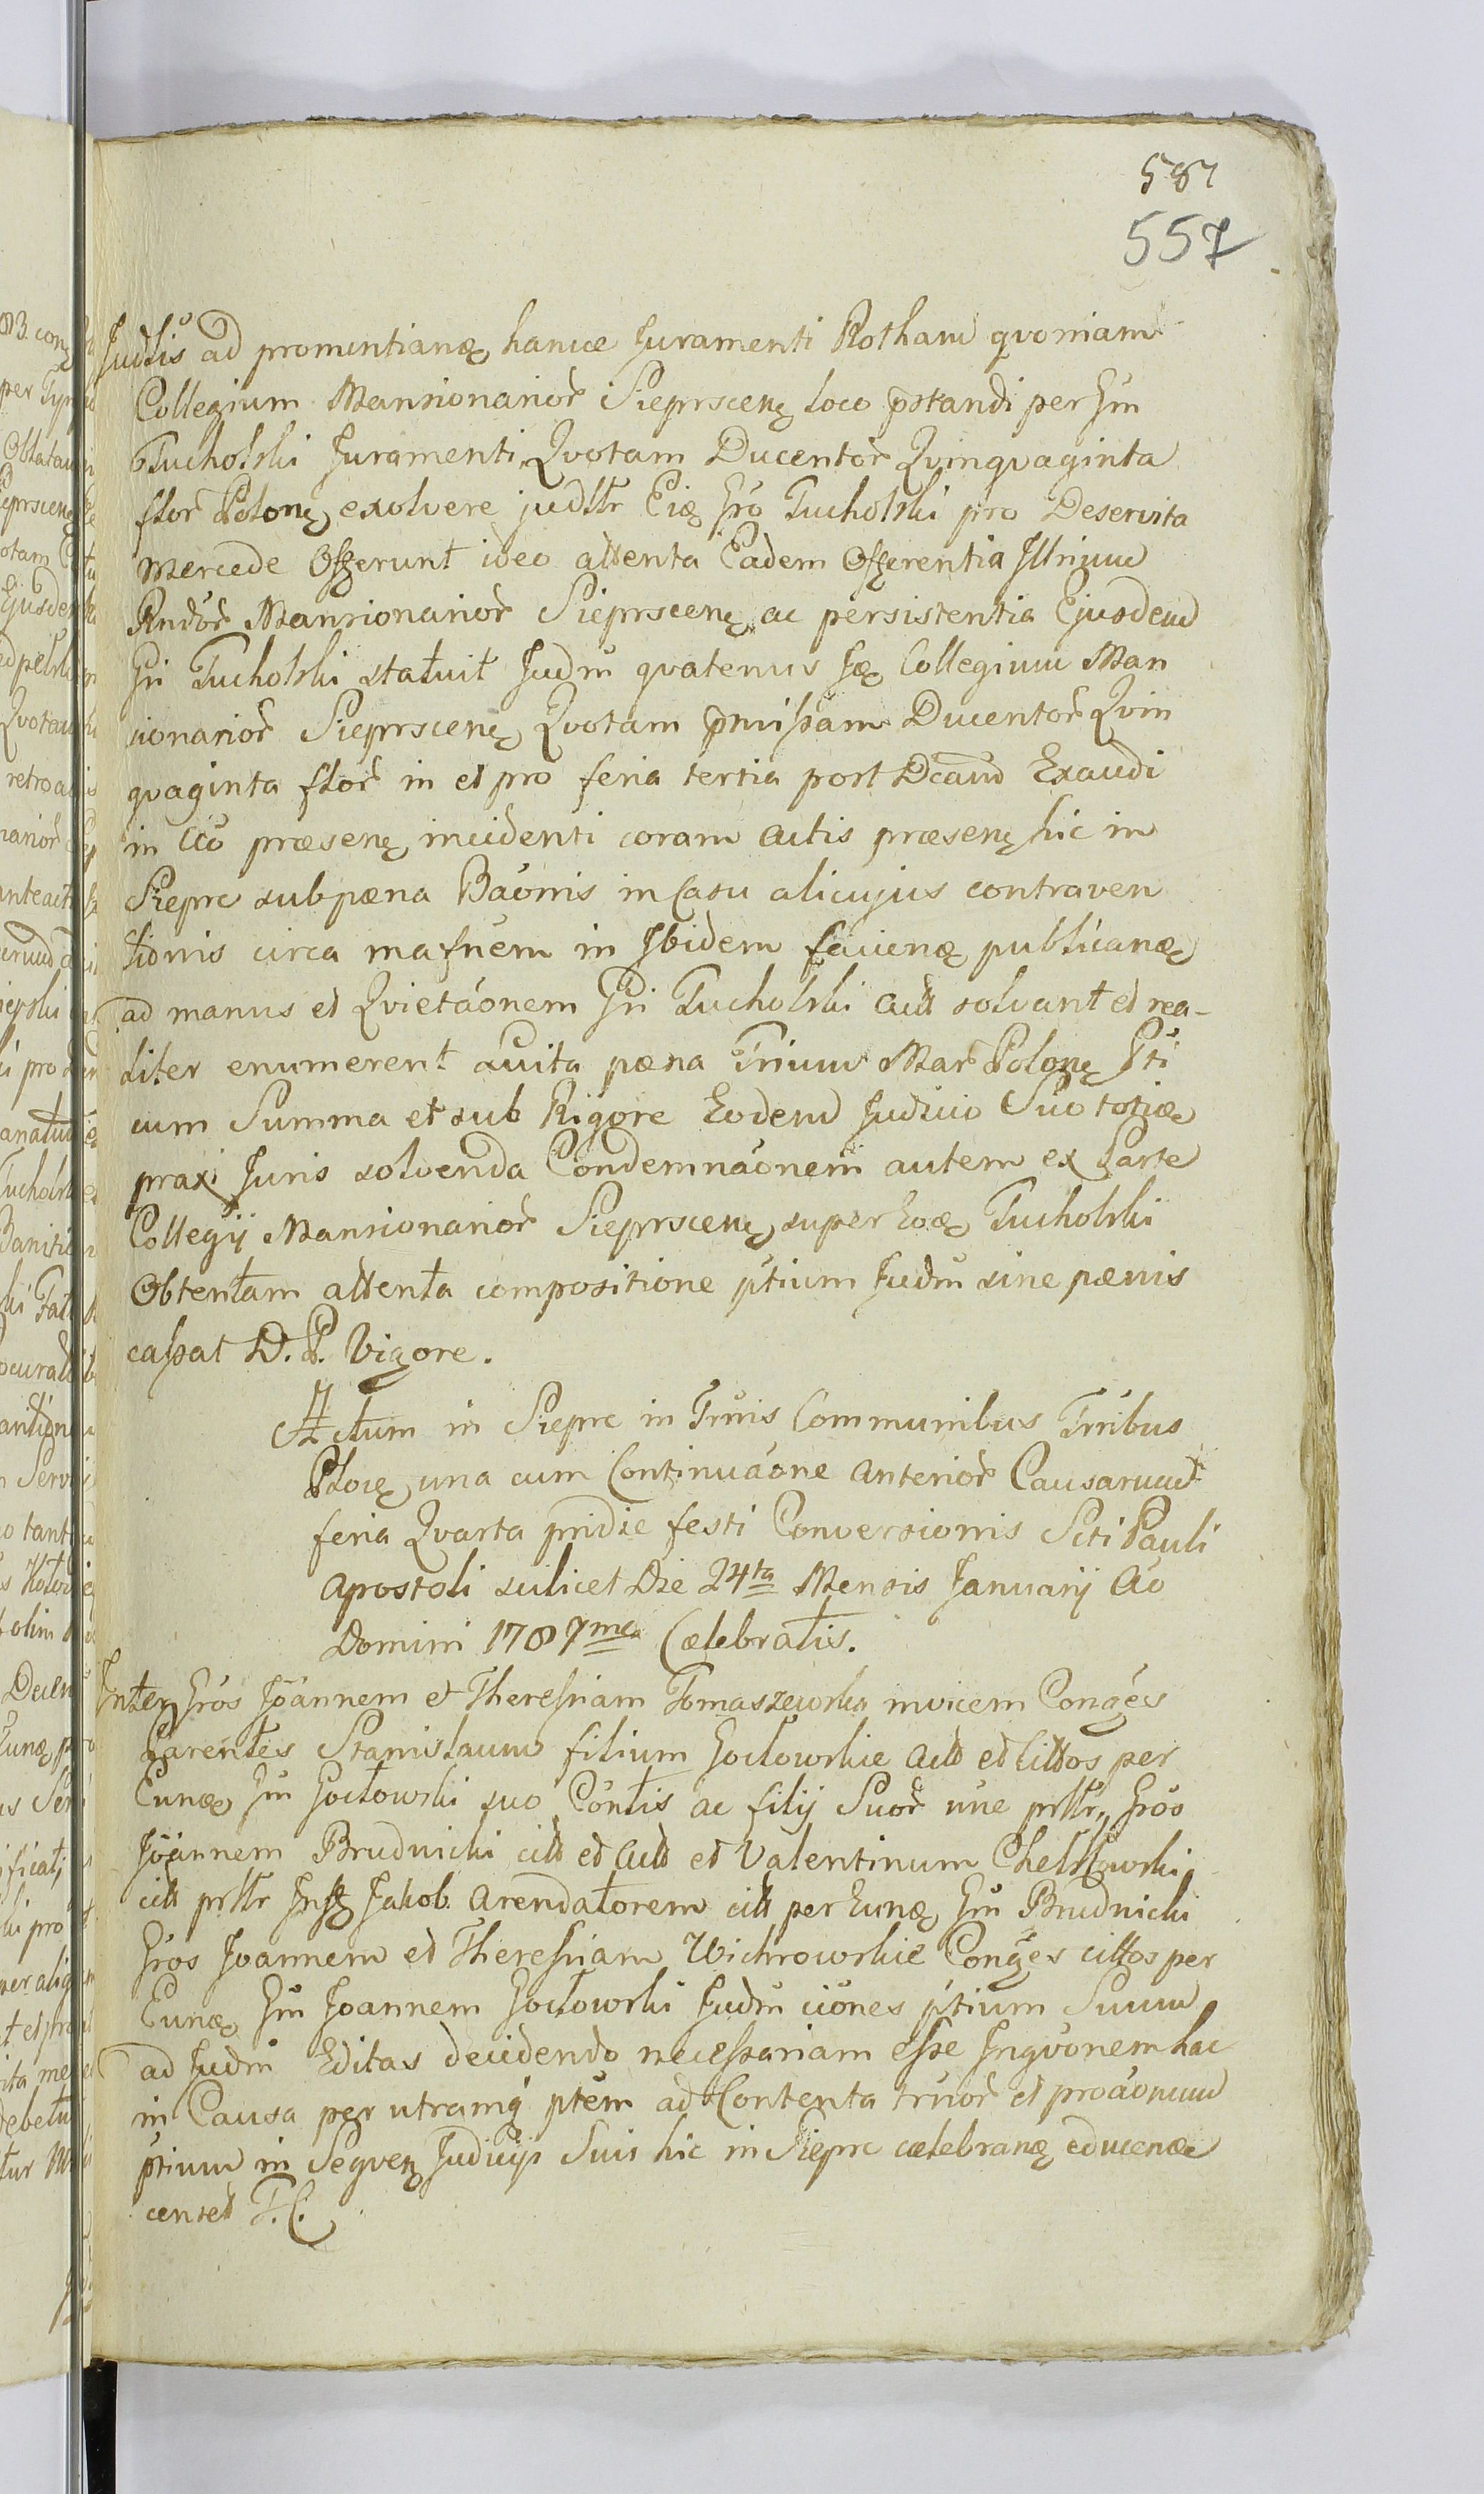 587
557
Judtis ad promintianą hance Juramenti Rotham qvoniam
Collegium Mansionarior Sieprscenę loco pstandi per Gm
Tucholski Juramenti Qvotam Ducentor Qvinqvaginta
flor Polonę exolvere judttr Eię Gro Tucholski pro Deservita
Mercede Offerunt ideo attenta Eadem Offerentia Illrium
Rndor Mansionarior Sieprscenę ac persistentia Ejusdem
Gri Tucholski statuit Judm qvatenus Collegium Man
sionarior Sieprscenę Qvotam pmissam Ducentor Qvin
qvaginta flor in et pro feria tertia post Dcam Exaudi
in Ao præsenę incidenti coram actis præsenę hic in
Sieprc sub pæna Baonis in Casu alicujus contraven
tionis circa mafnem in Ibidem facieną publicaną
ad manus et Qvietaonem Gri Tucholski actt solvant et rea-
liter enumerent luita pæna Trium Mar Polonę Pti
cum Summa et sub Rigore Eodem Judicio Suo totią
praxi Juris solvenda Condemnaonem autem ex Parte
Collegij Mansionarior Sieprscenę super Eoą Tucholski
Obtentam attenta compositione ptium Judm sine pænis
cassat D. P. Vigore.
Actum in Sieprc in Trnis Communibus Trribus
Plocę una cum Continuaone Anterior Causarum
feria Qvarta pridie festi Conversionis Scti Pauli
Apostoli scilicet Die 24ta Mensis Januarij Ao
Domini 1787ma Cælebratis.
Inter Gros Joannem et Theressiam Tomaszewskie invicem Conges
Parentes Stanislaum filium Goctowskie Actt et Cittos per
Eumą Gm Goctowski suo Contis ac filij Suor nne prttr, Gros
Joannem Brudnicki citt et Actt et Valentinum Chelstowski
citt prttr Jakob Arendatorem citt per Eumą Gm Brudnicki
Gros Joannem et Theressiam Wichrowskie Conges cittos per
Eumą Gm Joannem Goctowski Judm ciones ptium Suum
ad Judm Editas decidendo necessariam esse Inqvonem hac
in Causa per utramq ptem ad Contenta trnor et proaonum
ptium in Seqvenę Judicijs Suis hic in Sieprc cælebraną educeną
censet T. C.